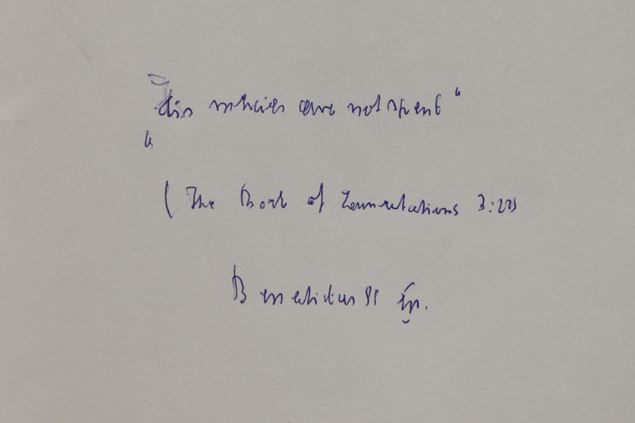 "His mercies are not spent"
(The Book of Lamentations 3:22)
Benedictus PP